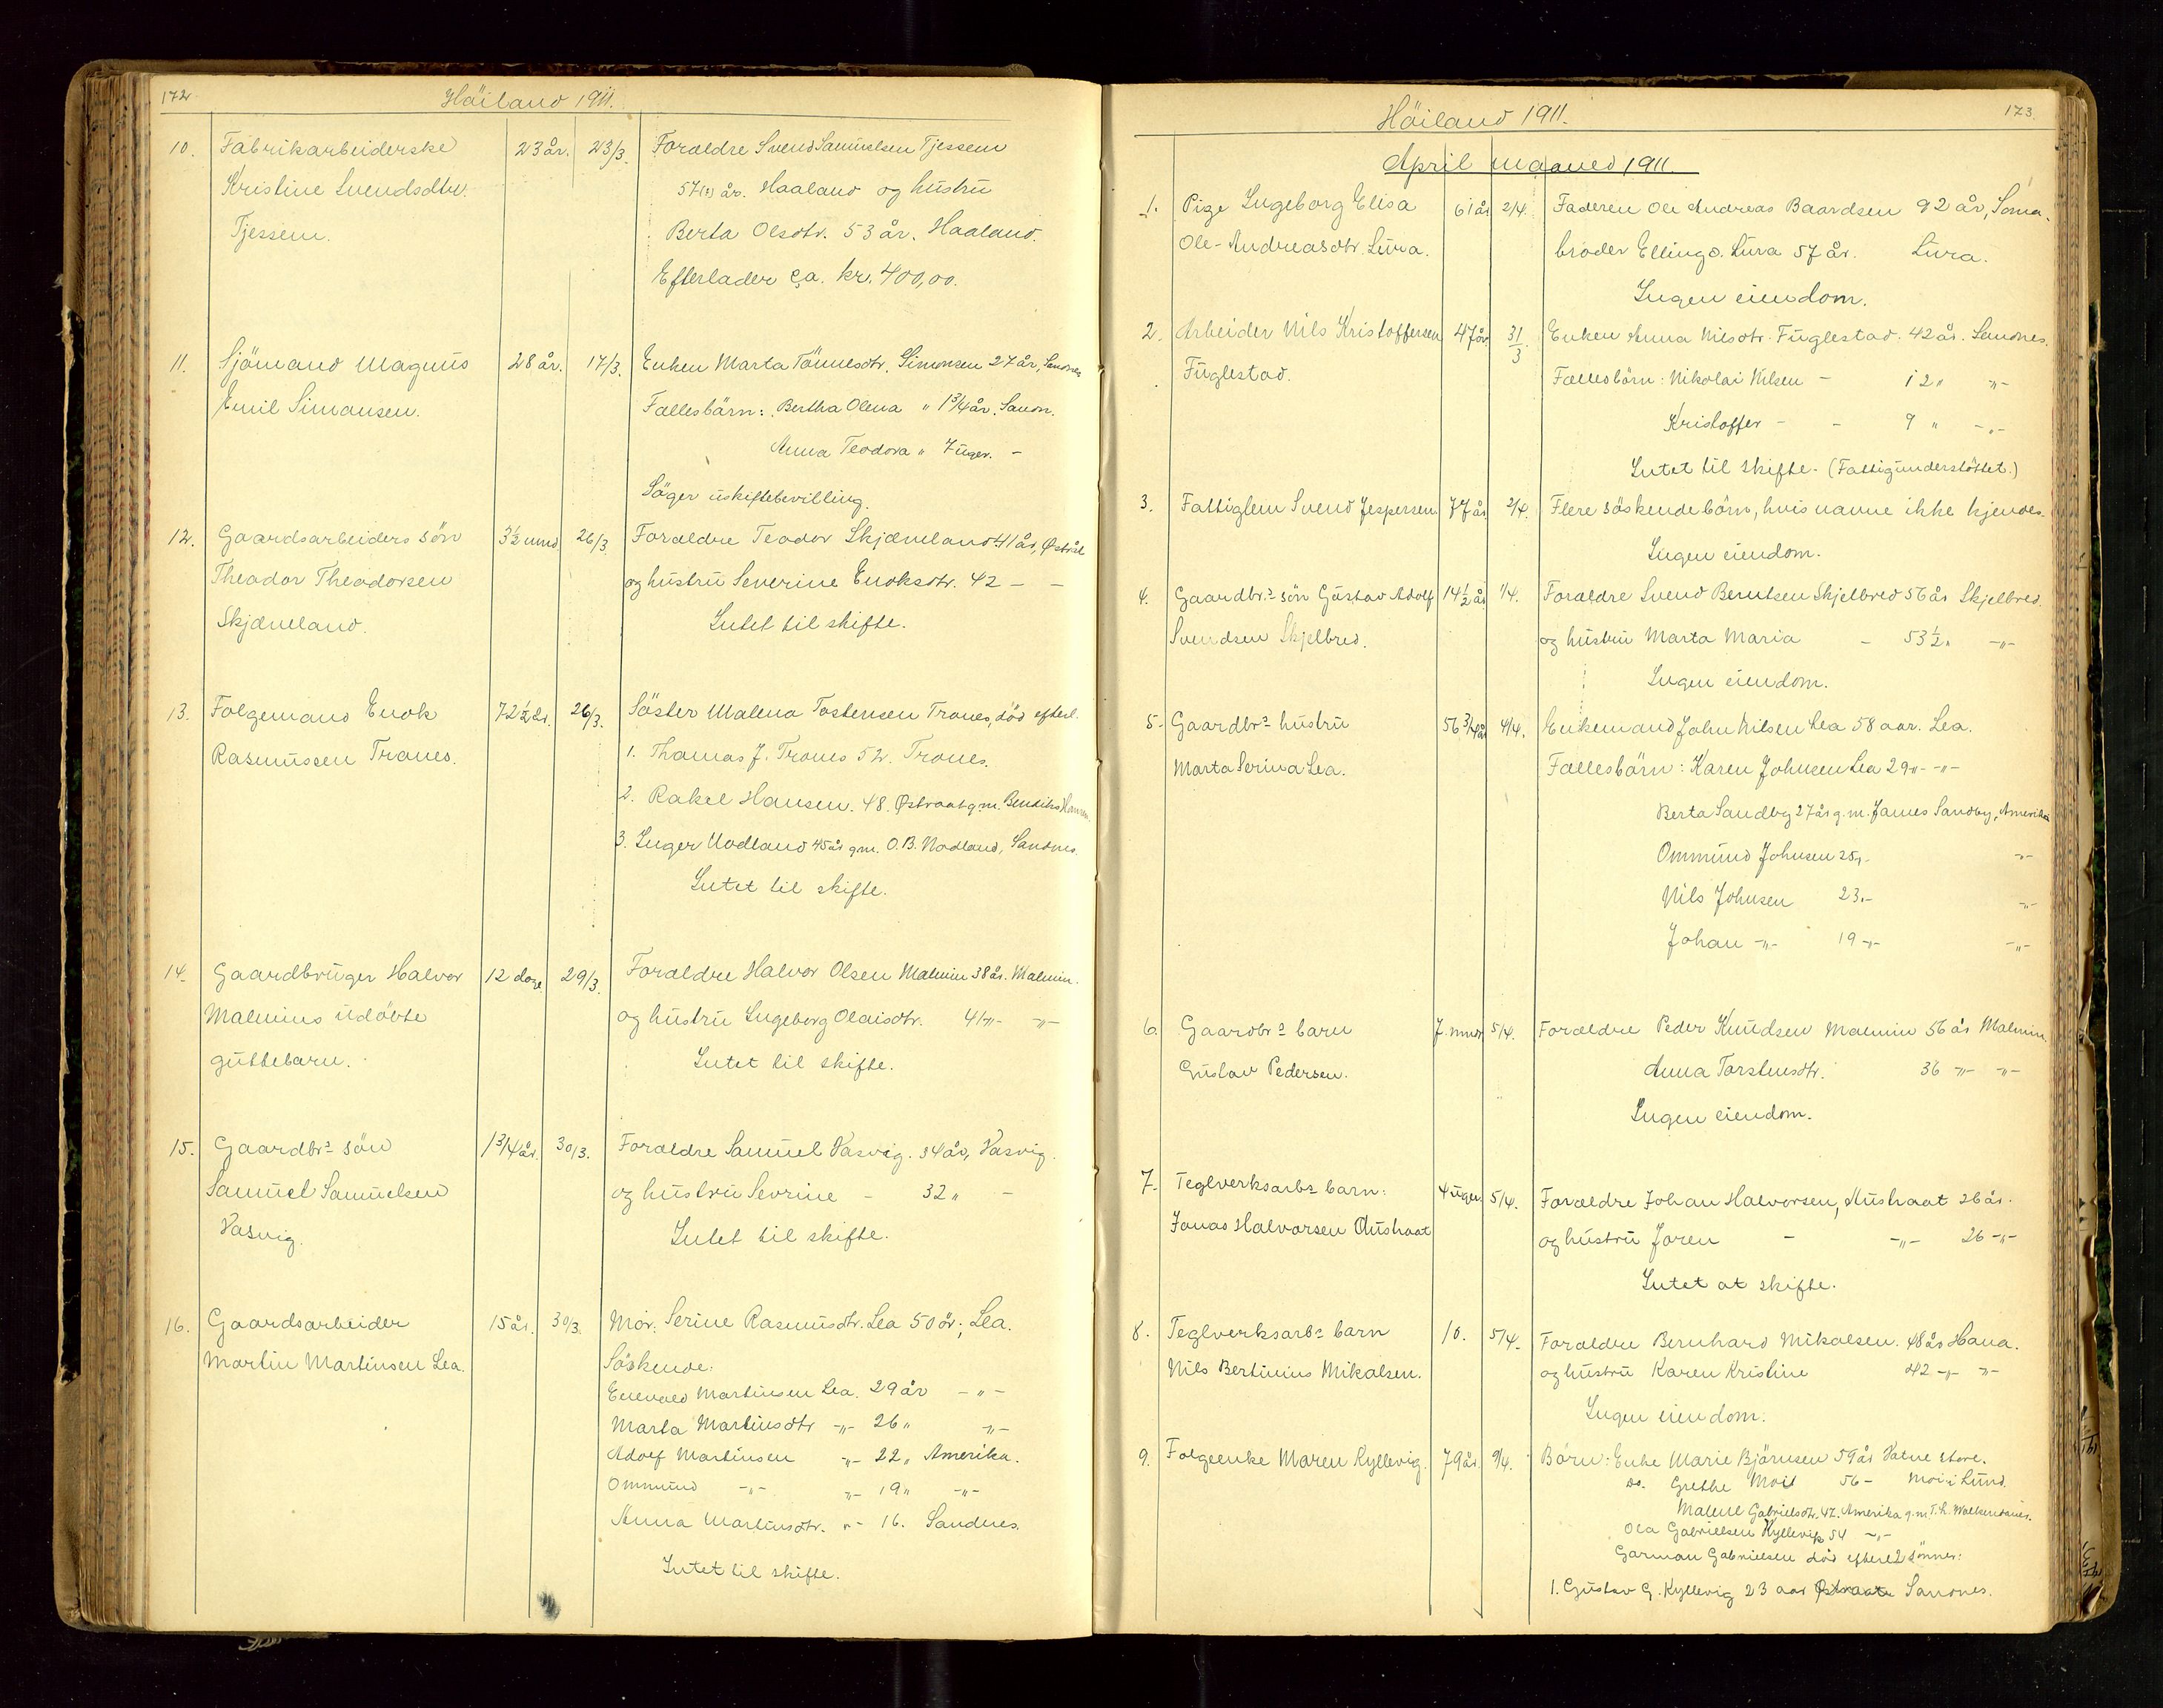 172
Häiland 1911.
10. Fabrikarbeiderske 23 år. 23/3. Forældre Svend Samuelsen Tjessem
Kristine Svendsdtr. 57 år. Haaland og hustru
Tjessem. Berta Olsdtr. 53 år. Haaland.
Efterlader ca. kr. 400,00.
11. Sjömand Magnus 28 år. 17/3. Enken Marta Tönnesdtr. Simonsen 27 år, Sandnes
Emil Simonsen. Fællesbärn: Bertha Olena " 1 3/4 år. Sandn.
Anna Teodora " 7 uger. -
Säger uskiftebevilling.
12. Gaardsarbeiders sön 3½ mnd. 26/3. Forældre Teodor Skjæveland 41 år, Østråt
Theodor Theodorsen og hustru Severine Enoksdtr. 42 - -
Skjæveland. Intet til skifte.
13. Følgemand Enok 72½ år. 26/3. Söster Malena Tostensen Trones, död efterl.
Rasmussen Trones. 1. Thomas J. Trones 52. Trones.
2. Rakel Hansen. 48. Østraat g.m. Bendiks Hansen.
3. Inger Nodland 45 år g.m. O.B. Nodland, Sandnes.
Intet til skifte.
14. Gaardbruger Halvor 12 dage 29/3. Forældre Halvor Olsen Malmin 38 år. Malmin.
Malmins udöbte og hustru Ingeborg Olaisdtr. 41 -"- -"-
guttebarn. Intet til skifte.
15. Gaardbrs sön 1 3/4 år. 30/3. Forældre Samuel Vasvig. 34 år, Vasvig.
Samuel Samuelsen og hustru Sevrine - 32 " -
Vasvig. Intet til skifte.
16. Gaardsarbeider 15 år. 30/3. Mor: Serine Rasmusdtr. Lea 50 år, Lea.
Martin Martinsen Lea. Söskende:
Enevald Martinsen Lea. 29 år - " -
Marta Martinsdtr -"- 26 " -"-
Adolf Martinsen -"- 22 " Amerika.
Ommund -"- -"- 19 " -"-
Anna Martinsdtr. -"- 16. Sandnes.
Intet til skifte.
173.
Häiland 1911.
April maaned 1911.
1. Pige Ingeborg Elisa 61 år 2/4. Faderen Ole Andreas Baardsen 92 år, Soma.
Ole-Andreasdtr. Lura. broder Elling O. Lura 57 år. Lura.
Ingen eiendom.
2. Arbeider Nils Kristoffersen 47 år 31/3. Enken Anna Nilsdtr. Fuglestad. 42 år. Sandnes.
Fuglestad. Fællesbörn: Nikolai Nilsen - 12 " -"-
Kristoffer - - 9 " -"-
Intet til skifte. (Fattigunderstöttet.)
3. Fattiglem Svend Jespersen 77 år. 2/4. Flere söskendebörn, hvis navne ikke kjendes.
Ingen eiendom.
4. Gaardbrs sön Gustav Adolf 14½ år 1/4. Forældre Svend Berntsen Skjelbred 56 år Skjelbred.
Svendsen Skjelbred. og hustru Marta Maria - 53½ " -"-
Ingen eiendom.
5. Gaardbrs hustru 56 3/4 år 4/4. Enkemand John Nilsen Lea 58 aar. Lea.
Marta Serina Lea. Fællesbörn: Karen Johnsen Lea 29 -"- -"-
Berta Sandby 27 år g.m. James Sandby, Amerika
Ommund Johnsen 25 "- -"-
Nils Johnsen 23 "- -"-
Johan -"- 19 -"- -"-
6. Gaardbrs barn 7 mndr 5/4. Forældre Peder Knudsen Malmin 56 år Malmin.
Gustav Pedersen. Anna Torstensdtr. 36 -"- -"-
Ingen eiendom.
7. Teglverksarbs barn: 4 uger 5/4. Forældre Johan Halvorsen, Austraat 26 år.
Jonas Halvorsen Austraat og hustru Joren - -"- 26 -"-
Intet at skifte.
8. Teglverksarbs barn 10. 5/4. Forældre Bernhard Mikalsen. 48 år Hana.
Nils Bertinius Mikalsen. og hustru Karen Kristine 42 -"- -"-
Ingen eiendom.
9. Følgeenke Maren Kyllevig. 79 år. 9/4. Börn: Enke Marie Björnsen 59 år Vatne store.
Do. Grethe Moi 56 - Moi i Lund.
Malene Gabrielsdtr. 47. Amerika g.m. T.L.
Ola Gabrielsen Kyllevik 54 -"-
Garman Gabrielsen död efterl. 2 sönner:
1. Gustav G. Kyllevig 23 aar Østraat Sandnes.